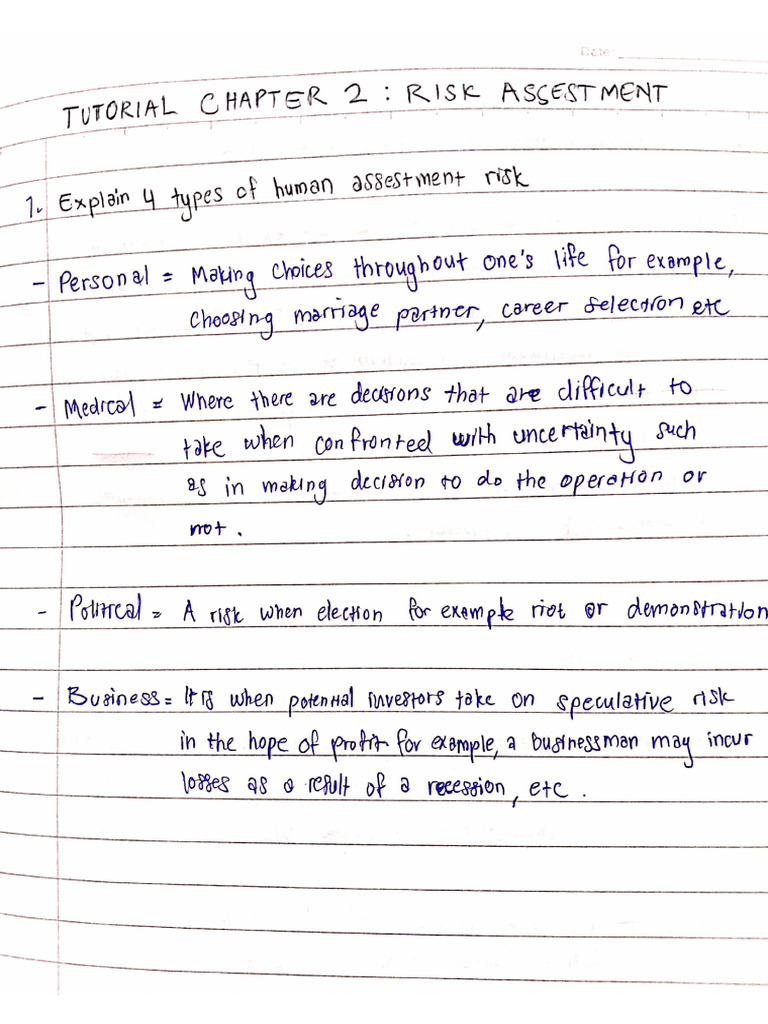 Date:
TUTORIAL CHAPTER 2 : RISK ASSESTMENT
1. Explain 4 types of human assestment risk
- Personal = Making choices throughout one's life for example,
choosing marriage partner, career selection etc
- Medical = Where there are decisions that are difficult to
take when confronted with uncertainty such
as in making decision to do the operation or
not.
- Political = A risk when election for example riot or demonstration
- Business = It is when potential investors take on speculative risk
in the hope of profit for example, a businessman may incur
losses as a result of a recession, etc.